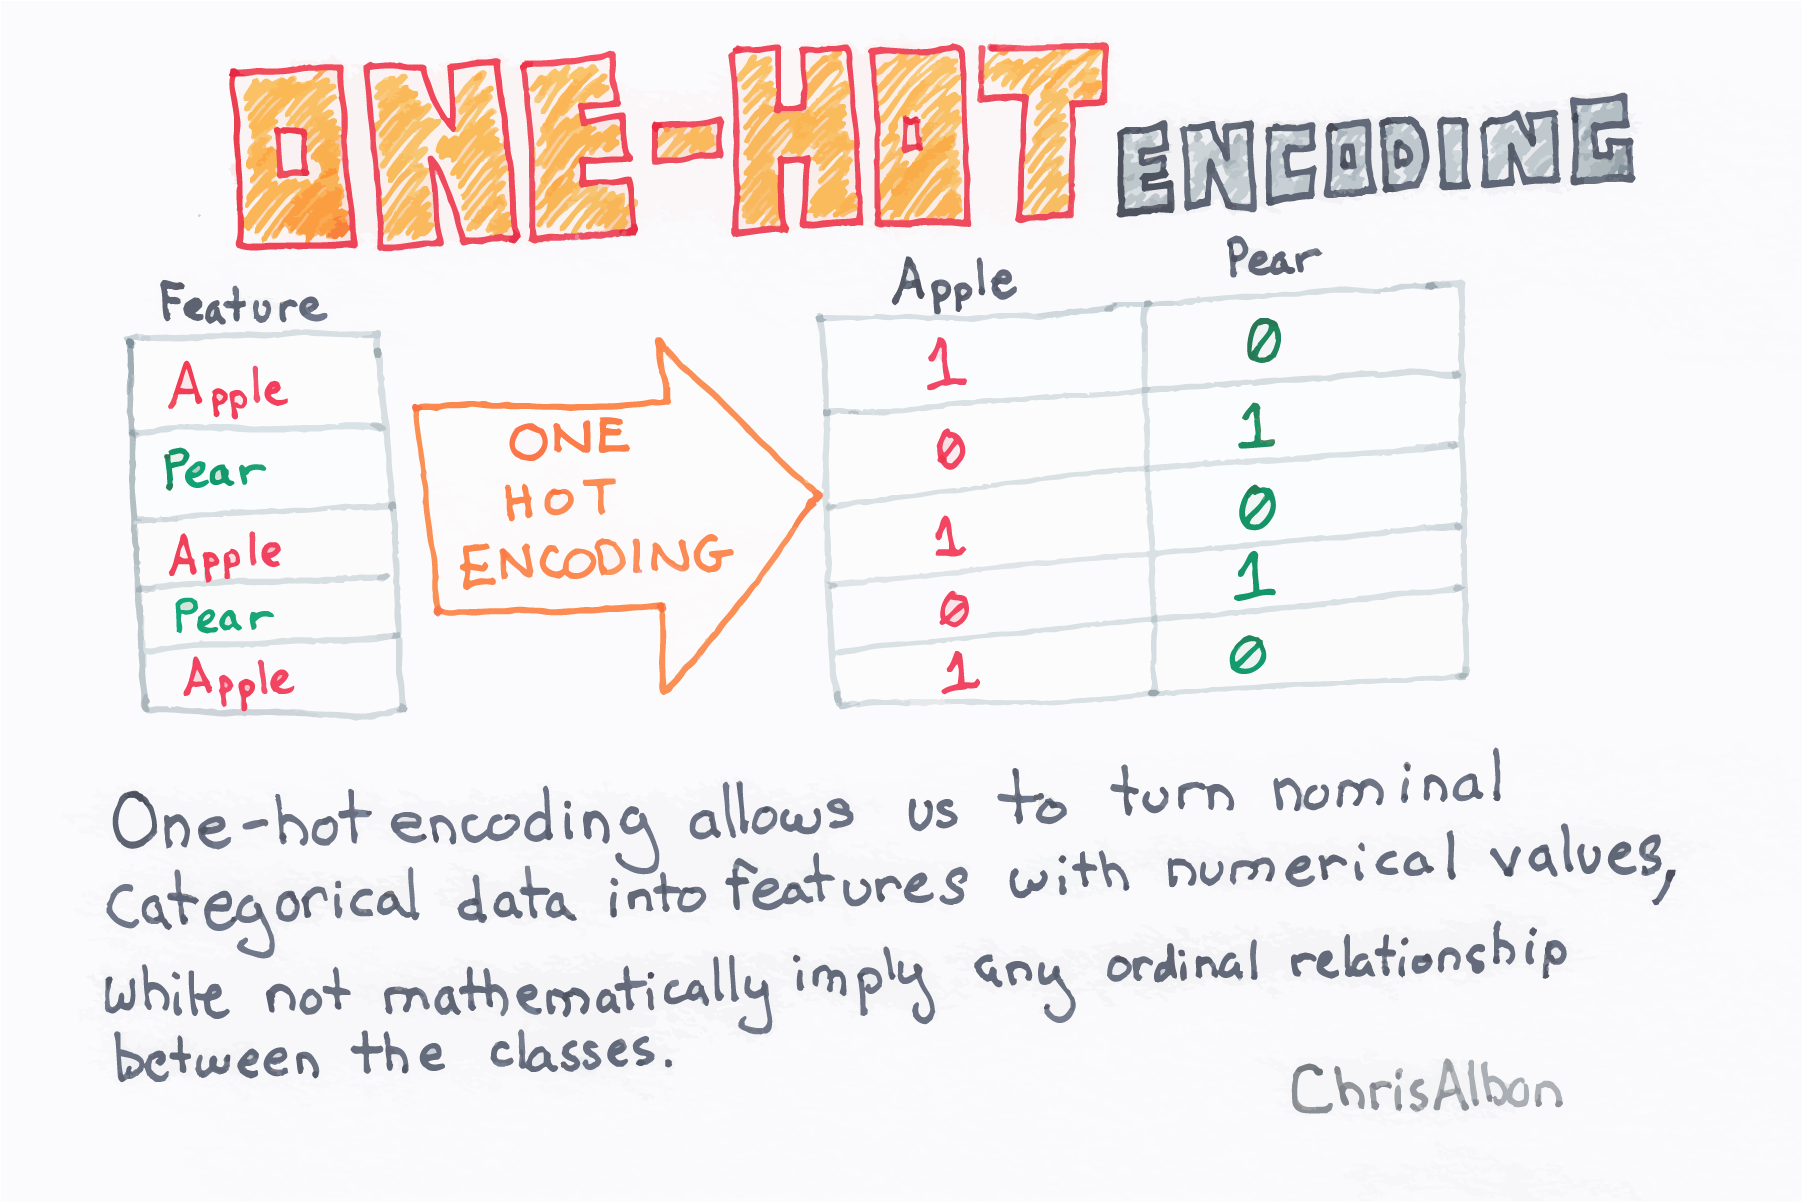 ONE-HOT ENCODING
Feature
Apple
Pear
Apple
Pear
Apple
ONE
HOT
ENCODING
Apple Pear
1 0
0 1
1 0
0 1
1 0
One-hot encoding allows us to turn nominal
categorical data into features with numerical values,
while not mathematically imply any ordinal relationship
between the classes.
ChrisAlbon